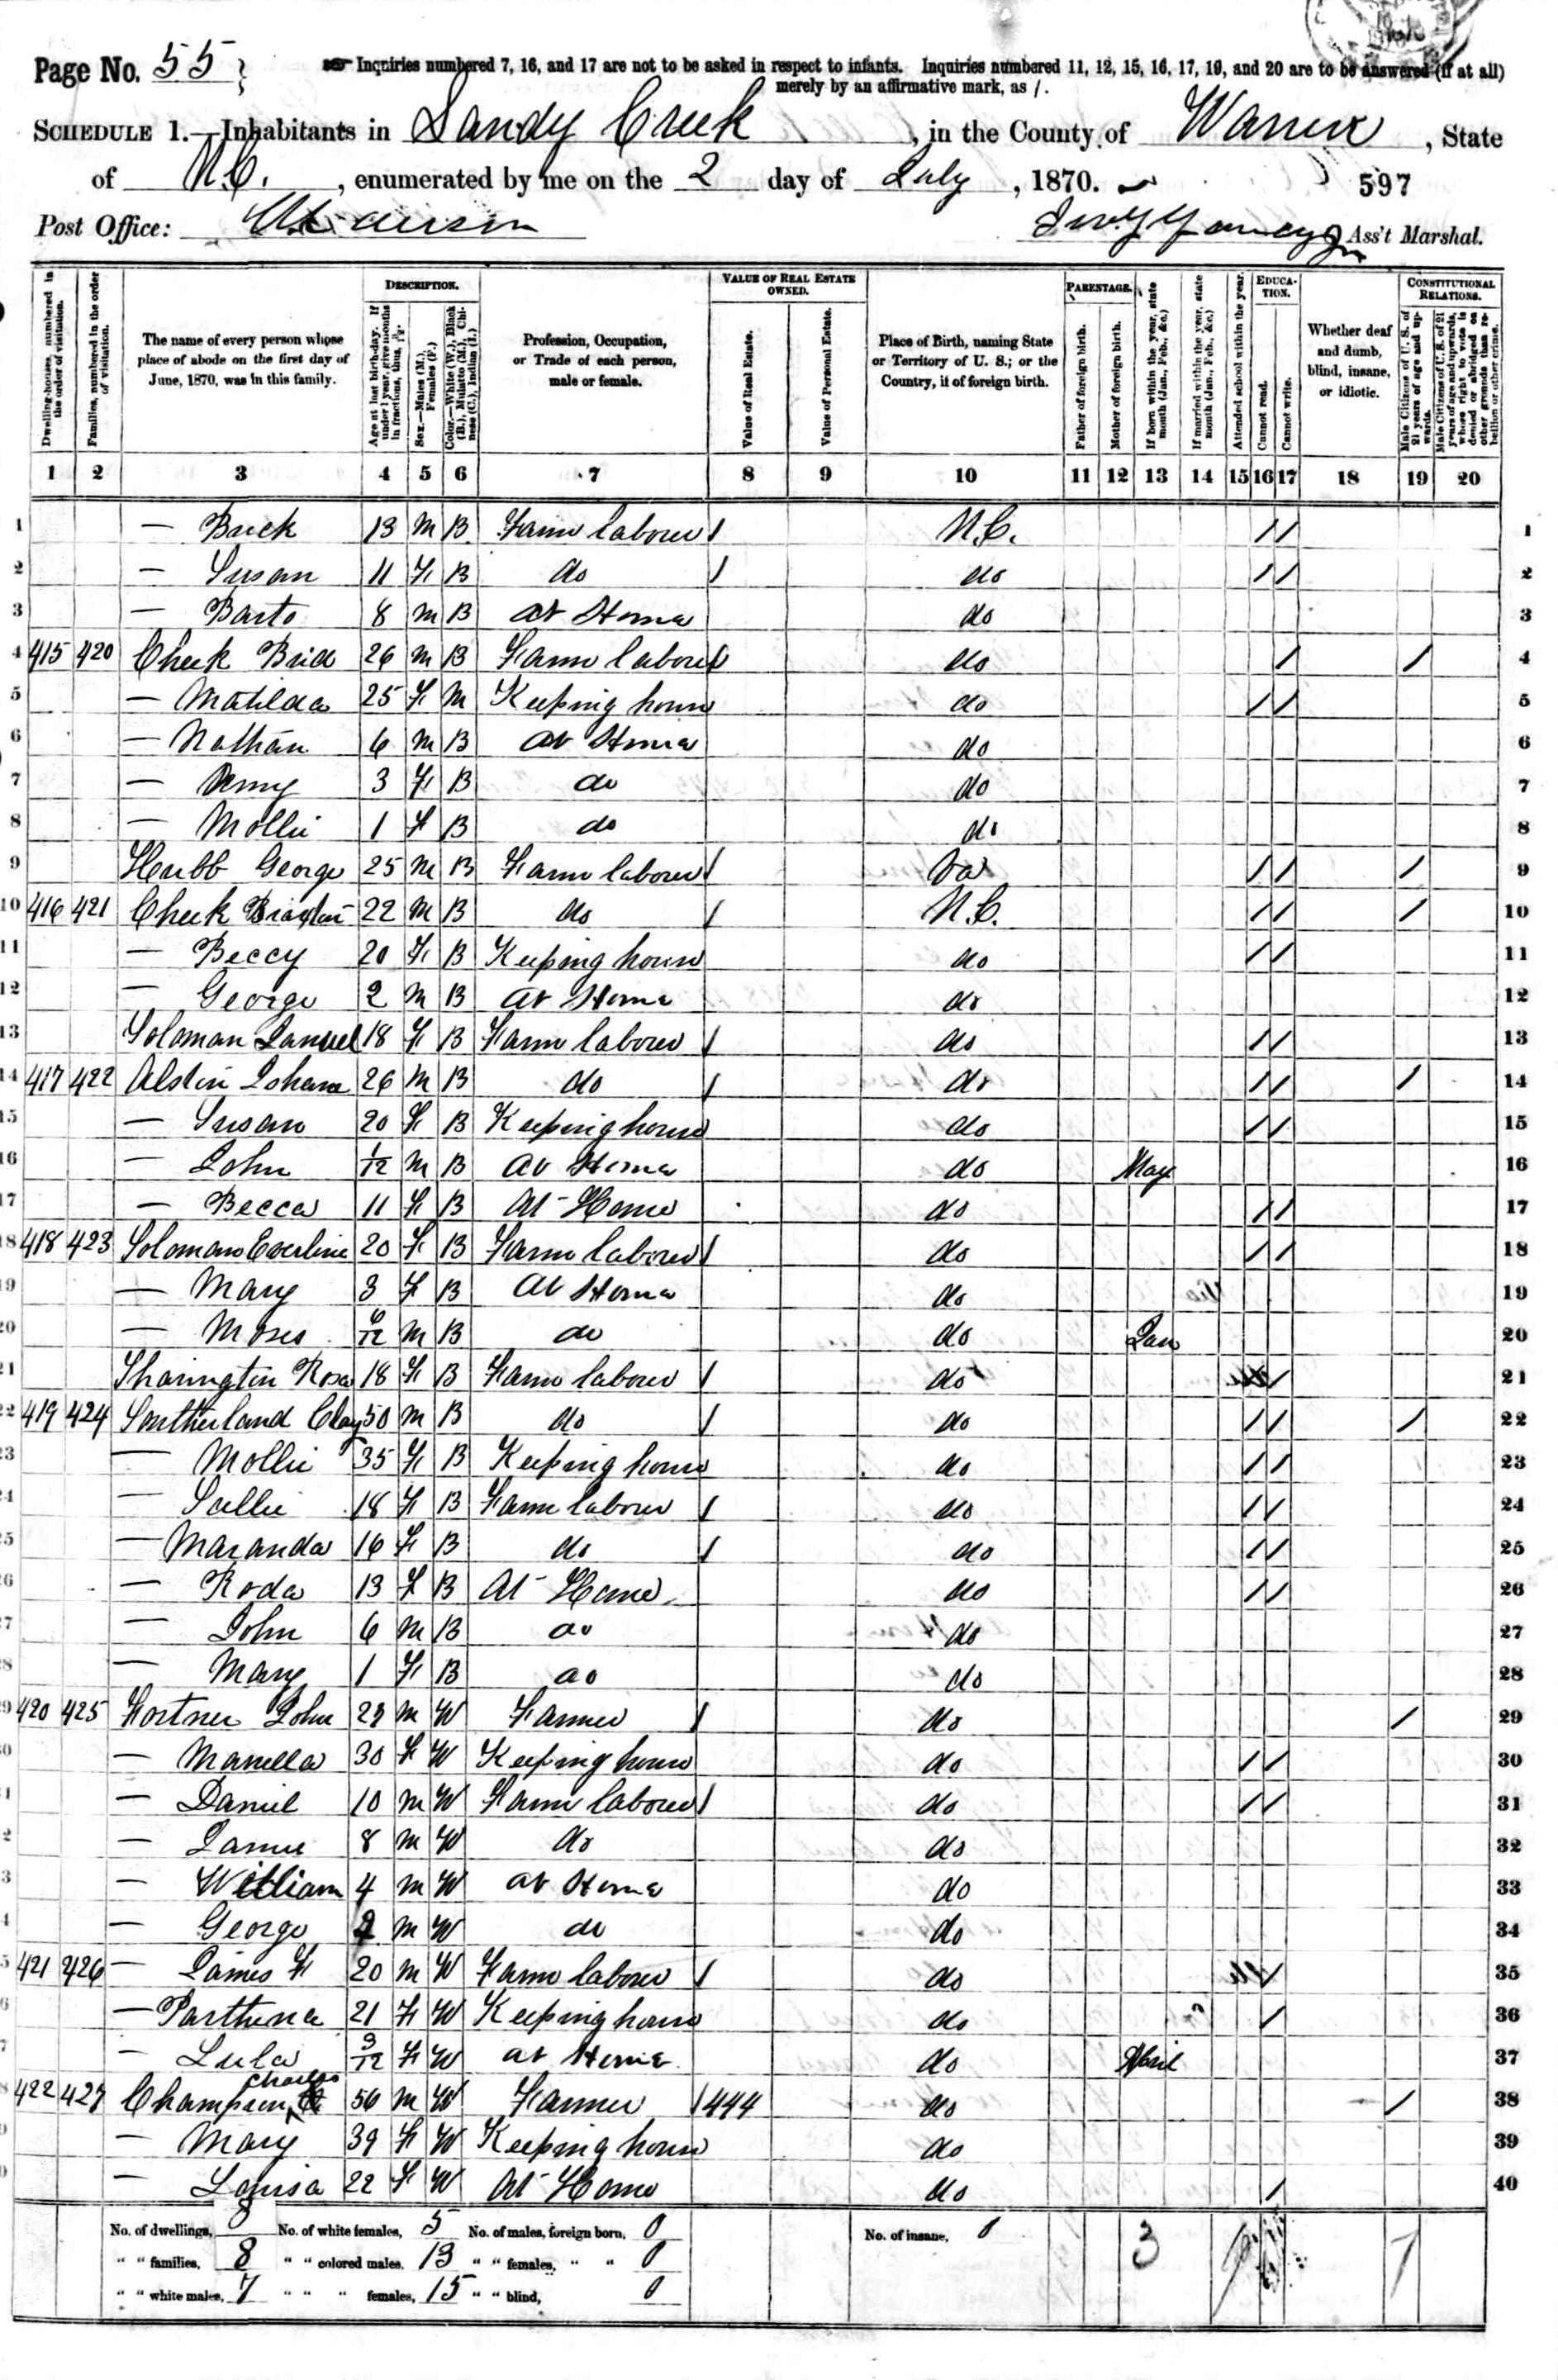 Page No. 55
☞ Inquiries numbered 7, 16, and 17 are not to be asked in respect to infants. Inquiries numbered 11, 12, 15, 16, 17, 19, and 20 are to be answered (if at all)
merely by an affirmative mark, as /.
SCHEDULE 1.—Inhabitants in Sandy Creek, in the County of Warren, State
of N.C., enumerated by me on the 2 day of July, 1870.
597
Post Office:
Ass't Marshal.
Dwelling-houses, numbered in the order of visitation.
Families, numbered in the order of visitation.
The name of every person whose place of abode on the first day of June, 1870, was in this family.
DESCRIPTION.
Age at last birth-day. If under 1 year, give months in fractions, thus, 3/12.
Sex.—Males (M.), Females (F.)
Color.—White (W.), Black (B.), Mulatto (M.), Chinese (C.), Indian (I.)
Profession, Occupation, or Trade of each person, male or female.
VALUE OF REAL ESTATE OWNED.
Value of Real Estate.
Value of Personal Estate.
Place of Birth, naming State or Territory of U. S.; or the Country, if of foreign birth.
PARENTAGE.
Father of foreign birth.
Mother of foreign birth.
If born within the year, state month (Jan., Feb., &c.)
If married within the year, state month (Jan., Feb., &c.)
Attended school within the year.
EDUCATION.
Cannot read.
Cannot write.
Whether deaf and dumb, blind, insane, or idiotic.
CONSTITUTIONAL RELATIONS.
Male Citizens of U. S. of 21 years of age and upwards.
Male Citizens of U. S. of 21 years of age and upwards, whose right to vote is denied or abridged on other grounds than rebellion or other crime.
1 2 3 4 5 6 7 8 9 10 11 12 13 14 15 16 17 18 19 20
1 — Buck 13 M B Farm laborer / N.C. / / 1
2 — Susan 11 F B do / do / / 2
3 — Barto 8 M B at Home do 3
4 415 420 Cheek 26 M B Farm laborer / do / / 4
5 — Matilda 25 F M Keeping house do / / 5
6 — Nathan 6 M B at Home do 6
7 — 3 F B do do 7
8 — Mollie 1 F B do do 8
9 George 25 M B Farm laborer / Va / / / 9
10 416 421 Cheek 22 M B do / N.C. / / / 10
11 — Beccy 20 F B Keeping house do / / 11
12 — George 2 M B at Home do 12
13 Soloman 18 F B Farm laborer / do / / 13
14 417 422 Alstin 26 M B do / do / / / 14
15 — Susan 20 F B Keeping house do / / 15
16 — John 1/12 M B at Home do May 16
17 — Becca 11 F B At Home do / / 17
18 418 423 Soloman Everline 20 F B Farm laborer / do / / 18
19 — Mary 3 F B At Home do 19
20 — Moses 6/12 M B do do Jan 20
21 Rosa 18 F B Farm laborer / do / 21
22 419 424 Southerland Clay 50 M B do / do / / / 22
23 — Mollie 35 F B Keeping house do / / 23
24 — Sallie 18 F B Farm laborer / do / / 24
25 — Maranda 16 F B do / do / / 25
26 — Roda 13 F B At Home do / / 26
27 — John 6 M B do do 27
28 — Mary 1 F B do do 28
29 420 425 Fortner John 29 M W Farmer / do / 29
30 — Manella 30 F W Keeping house do / / 30
31 — Daniel 10 M W Farm laborer / do / / 31
32 — 8 M W do do 32
33 — William 4 M W at Home do 33
34 — George 2 M W do do 34
35 421 426 — James F 20 M W Farm laborer / do / 35
36 — Parthena 21 F W Keeping house do / 36
37 — Lula 3/12 F W at Home do April 37
38 422 427 Champion Charles 56 M W Farmer / 444 do / 38
39 — Mary 39 F W Keeping house do 39
40 — Louisa 22 F W At Home do / 40
No. of dwellings, 8 No. of white females, 5 No. of males, foreign born, 0 No. of insane, 0
" " families, 8 " " colored males, 13 " " females, " " 0 3 7
" " white males, 7 " " " females, 15 " " blind, 0